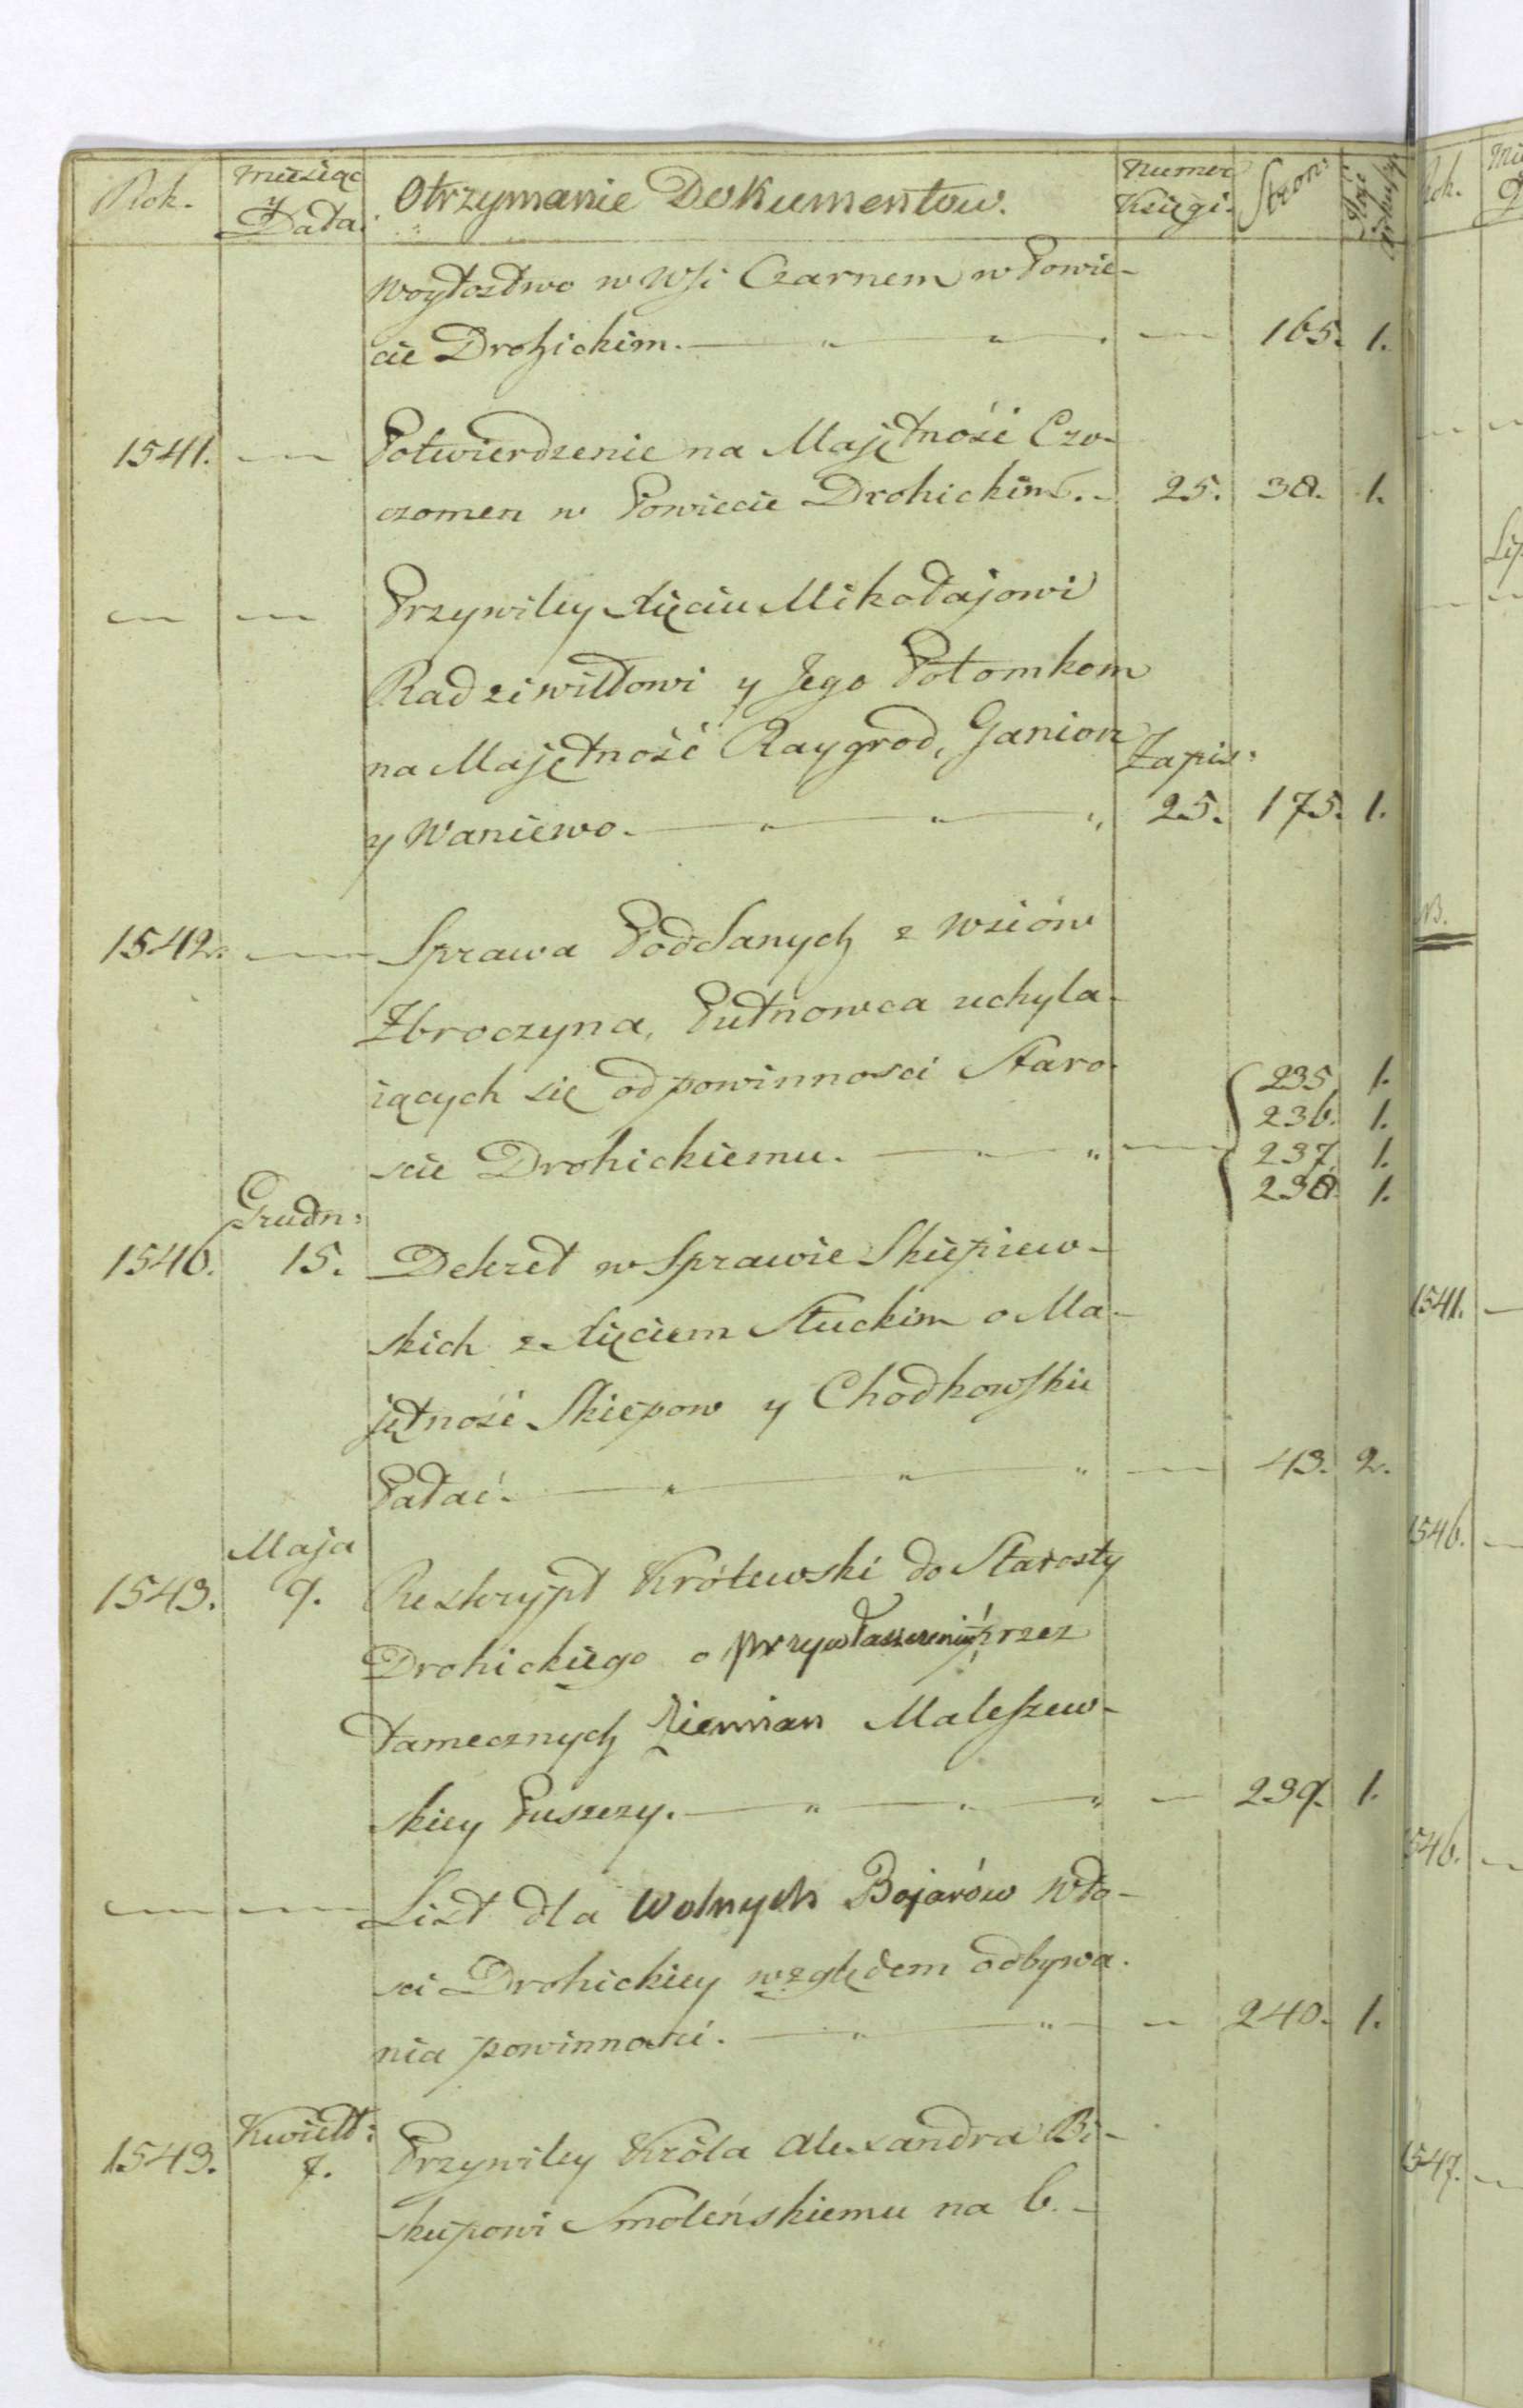 Rok. Miesiąc y Data. Otrzymanie Dokumentow. Numer Księgi. Stron:
Woytostwo w Wsi Czarnem w Powie-
cie Drohickim. — „ — „ — 165. 1.
1541. — Potwierdzenie na Majętność Czo-
czomen w Powiecie Drohickim. - 25. 38. 1.
— — Przywiley Xięciu Mikołajowi
Radziwiłłowi y Jego Potomkom
na Majętność Raygrod, Ganiondz Zapis:
y Waniewo. — „ — „ — „ 25. 175. 1.
1542. — Sprawa Poddanych z Wsiów
Zbroczyna, Putnowca uchyla-
iących się od powinnosci Staro-
scie Drohickiemu. — „ — „ — 235. 1.
236. 1.
237. 1.
238. 1.
Grudn:
1546. 15. Dekret w Sprawie Skiepiew-
skich z Xięciem Słuckim o Ma-
jętność Skiepow y Chodkowskie
Pałać. — „ — „ — „ — 43. 2.
Maja
1543. 9. Reskrypt Królewski do Starosty
Drohickiego o przywłaszczeniu przez
tamecznych Ziemian Maleszew-
skiey Puszczy. — „ — „ — „ — 239. 1.
— — List dla Wolnych Bojarów Wło-
sci Drohickiey względem odbywa-
nia powinnosci. — „ — „ — 240. 1.
Kwiet:
1543. 7. Przywiley Króla Alexandra Bi-
skupowi Smoleńskiemu na 6. -
Rok.
NB.
1541. —
1546. —
1546. —
1547. —